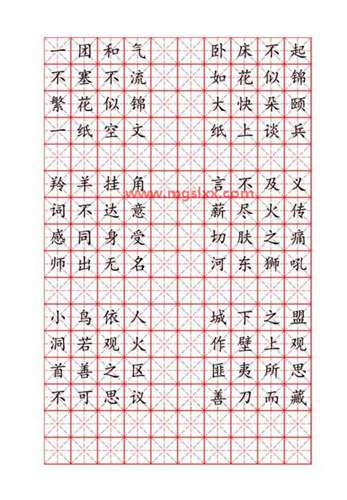 一团和气 卧床不起
不塞不流 如花似锦
繁花似锦 大快朵颐
一纸空文 纸上谈兵
羚羊挂角 言不及义
www.mgslxx.com
词不达意 薪尽火传
感同身受 切肤之痛
师出无名 河东狮吼
小鸟依人 城下之盟
洞若观火 作壁上观
首善之区 匪夷所思
不可思议 善刀而藏